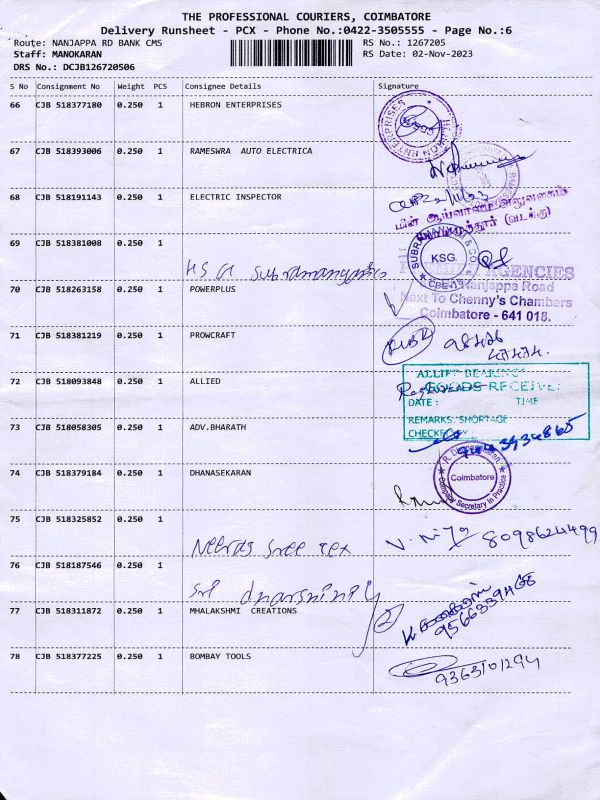 THE PROFESSIONAL COURIERS, COIMBATORE
Delivery Runsheet - PCX - Phone No.:0422-3505555 - Page No.:6
Route: NANJAPPA RD BANK CMS RS No.: 1267205
Staff: MANOKARAN RS Date: 02-Nov-2023
DRS No.: DCJB126720506
S No Consignment No Weight PCS Consignee Details Signature
66 CJB 518377180 0.250 1 HEBRON ENTERPRISES
HEBRON ENTERPRISES
67 CJB 518393006 0.250 1 RAMESWRA AUTO ELECTRICA
68 CJB 518191143 0.250 1 ELECTRIC INSPECTOR
மின் ஆய்வாளர் அலுவலகம்
(வடக்கு)
69 CJB 518381008 0.250 1
SUBRAMANIAM & CO KSG. CBE-18
70 CJB 518263158 0.250 1 POWERPLUS
AGENCIES
Nanjappa Road
Next To Chenny's Chambers
Coimbatore - 641 018.
71 CJB 518381219 0.250 1 PROWCRAFT
98426
72 CJB 518093848 0.250 1 ALLIED
ALLIED BEARINGS
GOODS RECEIVED
DATE : TIME
REMARKS/SHORTAGE
CHECKED BY
73 CJB 518058305 0.250 1 ADV.BHARATH
74 CJB 518379184 0.250 1 DHANASEKARAN
Coimbatore
Company Secretary In Practice
75 CJB 518325852 0.250 1
sree tex
8098624499
76 CJB 518187546 0.250 1
Sri
77 CJB 518311872 0.250 1 MHALAKSHMI CREATIONS
78 CJB 518377225 0.250 1 BOMBAY TOOLS
9363101294